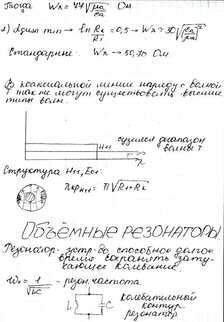 Тогда Wл = 
2) Для min → ln Rл/Ri = 0,5 → Wл ≈ 30
Стандартные: Wл → 50, 70 Ом.
В коаксиальной линии наряду с волной
так же могут существовать высшие
типы волн.
сузился диапазон
волны T
H₁₁
λ
Структура H₁₁, E₀₁:
λкр H₁₁ =
ОБЪЁМНЫЕ РЕЗОНАТОРЫ
Резонатор - устр-во способное долгое
время сохранять зату-
хающее колебание.
W₀ = 1/√LC - резон. частота
L
C
колебательный
контур
резонатор